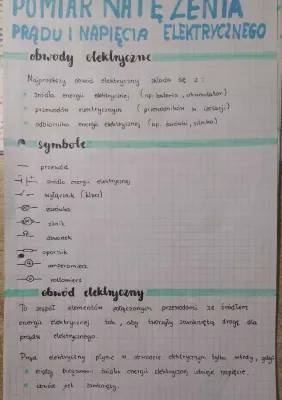 POMIAR NATĘŻENIA
PRĄDU I NAPIĘCIA ELEKTRYCZNEGO
obwody elektryczne
Najprostszy obwód elektryczny składa się z:
źródła energii elektrycznej (np. bateria, akumulator)
przewodów elektrycznych (przewodników w izolacji)
odbiornika energii elektrycznej (np. żarówki, silnika)
symbole
przewód
źródło energii elektrycznej
wyłącznik (klucz)
żarówka
M silnik
dzwonek
opornik
A amperomierz
V woltomierz
obwód elektryczny
To zespół elementów połączonych przewodami ze źródłem
energii elektrycznej tak, aby tworzyły zamkniętą drogę dla
prądu elektrycznego.
Prąd elektryczny płynie w obwodzie elektrycznym tylko wtedy, gdy:
między biegunami źródła energii elektrycznej istnieje napięcie,
obwód jest zamknięty.